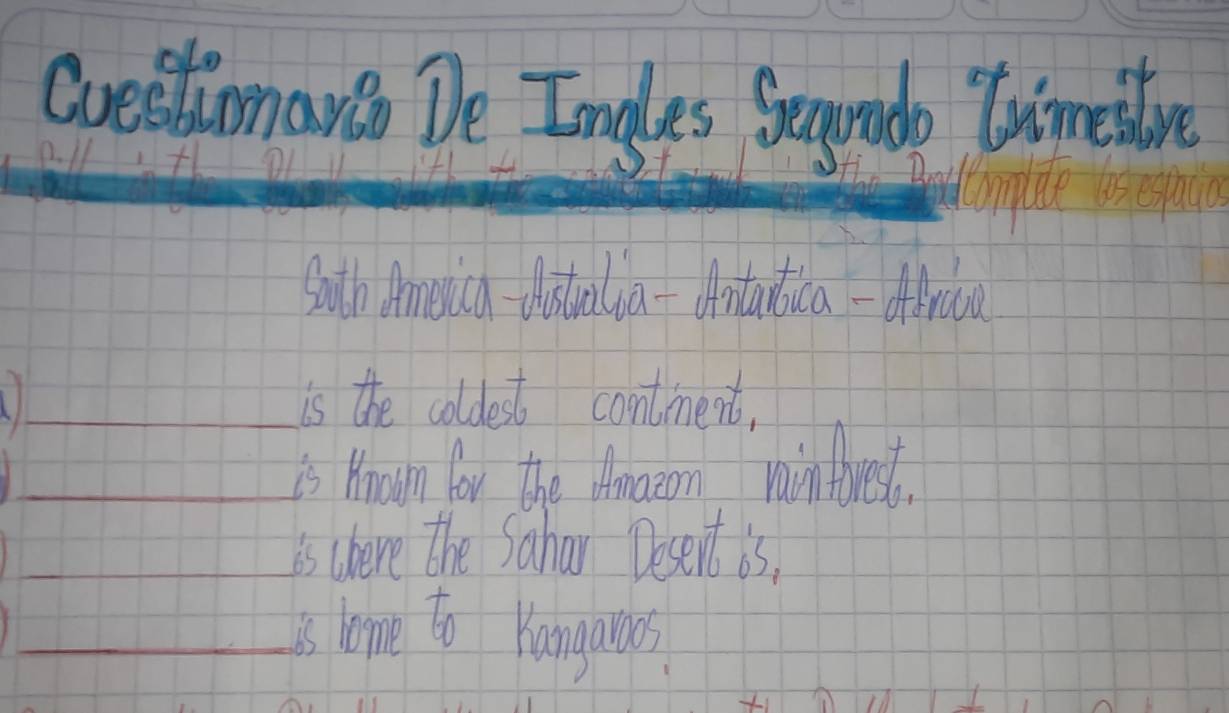 Cuestionario De Ingles Segundo Trimestre
1. Fill in the Blank with the correct in the Box/Complete los espacios
South America - Australia - Antartica - Africa
a) is the coldest continent.
) is Known for the Amazon rainforest.
) is where the Sahar Desert is.
) is home to Kangaroos.